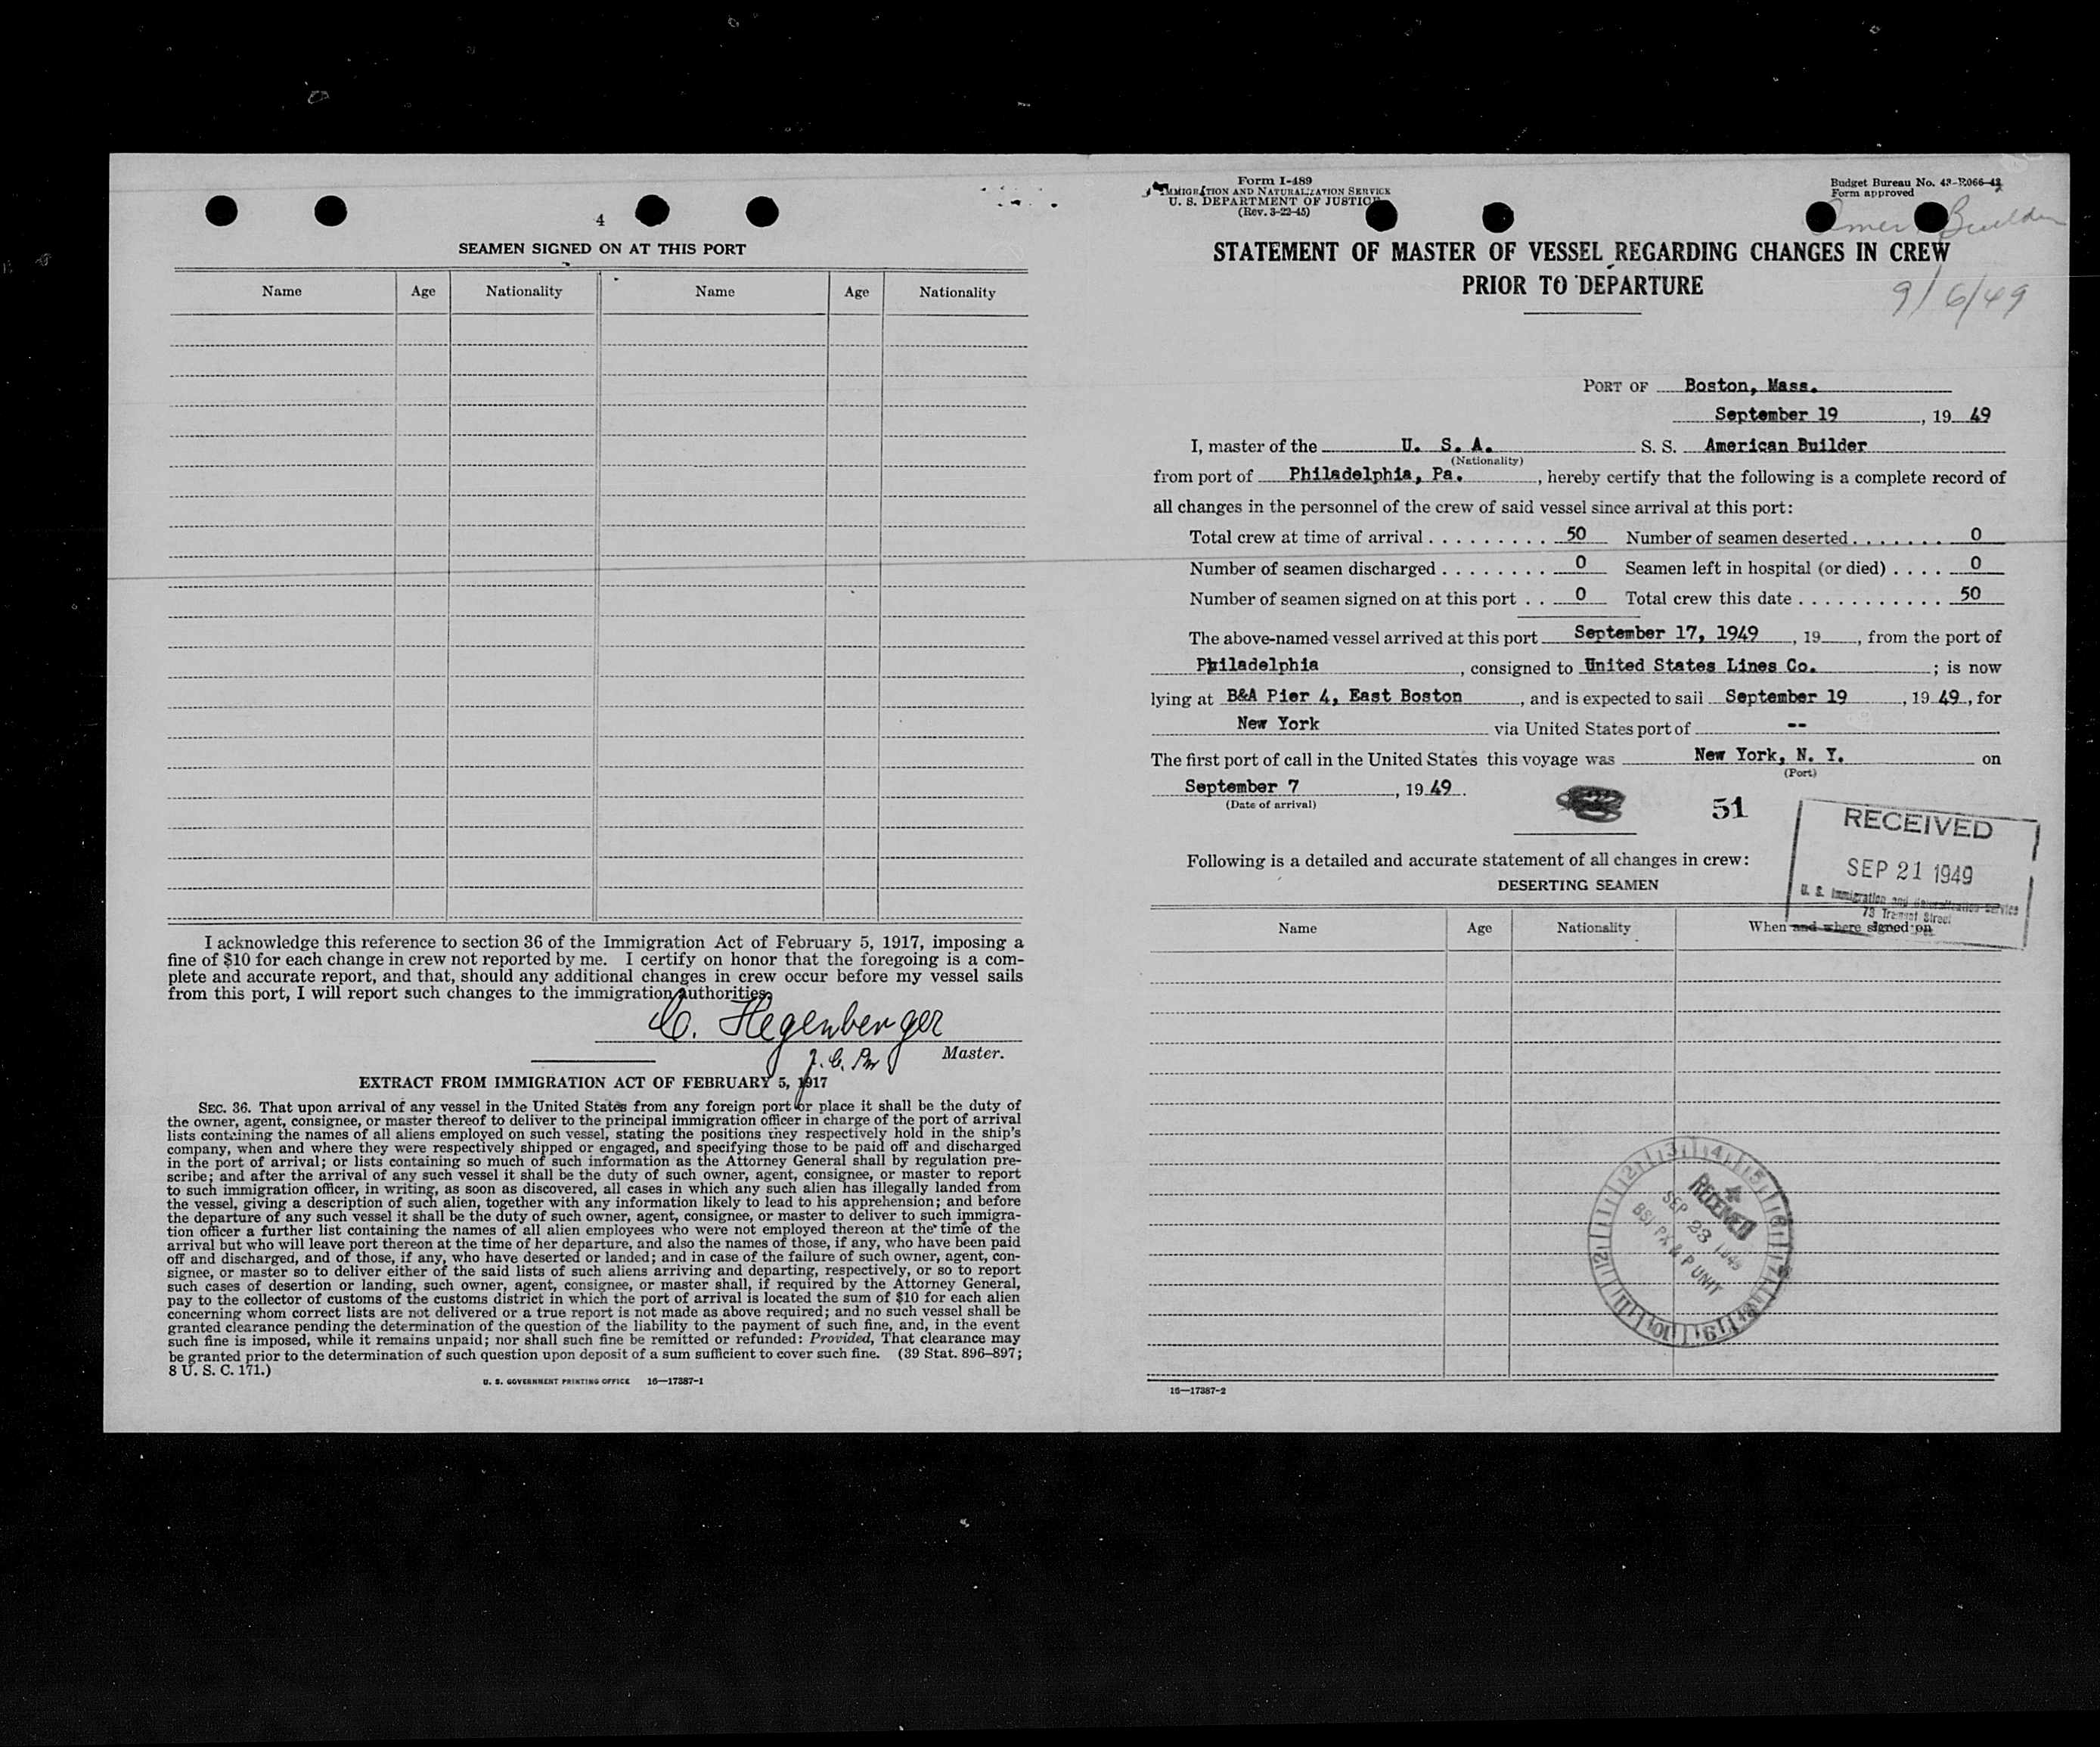 4
SEAMEN SIGNED ON AT THIS PORT
Name Age Nationality Name Age Nationality
I acknowledge this reference to section 36 of the Immigration Act of February 5, 1917, imposing a
fine of $10 for each change in crew not reported by me. I certify on honor that the foregoing is a com-
plete and accurate report, and that, should any additional changes in crew occur before my vessel sails
from this port, I will report such changes to the immigration authorities.
C. Hegenberger
Master.
EXTRACT FROM IMMIGRATION ACT OF FEBRUARY 5, 1917
SEC. 36. That upon arrival of any vessel in the United States from any foreign port or place it shall be the duty of
the owner, agent, consignee, or master thereof to deliver to the principal immigration officer in charge of the port of arrival
lists containing the names of all aliens employed on such vessel, stating the positions they respectively hold in the ship's
company, when and where they were respectively shipped or engaged, and specifying those to be paid off and discharged
in the port of arrival; or lists containing so much of such information as the Attorney General shall by regulation pre-
scribe; and after the arrival of any such vessel it shall be the duty of such owner, agent, consignee, or master to report
to such immigration officer, in writing, as soon as discovered, all cases in which any such alien has illegally landed from
the vessel, giving a description of such alien, together with any information likely to lead to his apprehension; and before
the departure of any such vessel it shall be the duty of such owner, agent, consignee, or master to deliver to such immigra-
tion officer a further list containing the names of all alien employees who were not employed thereon at the time of the
arrival but who will leave port thereon at the time of her departure, and also the names of those, if any, who have been paid
off and discharged, and of those, if any, who have deserted or landed; and in case of the failure of such owner, agent, con-
signee, or master so to deliver either of the said lists of such aliens arriving and departing, respectively, or so to report
such cases of desertion or landing, such owner, agent, consignee, or master shall, if required by the Attorney General,
pay to the collector of customs of the customs district in which the port of arrival is located the sum of $10 for each alien
concerning whom correct lists are not delivered or a true report is not made as above required; and no such vessel shall be
granted clearance pending the determination of the question of the liability to the payment of such fine, and, in the event
such fine is imposed, while it remains unpaid; nor shall such fine be remitted or refunded: Provided, That clearance may
be granted prior to the determination of such question upon deposit of a sum sufficient to cover such fine. (39 Stat. 896–897;
8 U. S. C. 171.)
U. S. GOVERNMENT PRINTING OFFICE 16—17387-1
Form I-489
IMMIGRATION AND NATURALIZATION SERVICE
U. S. DEPARTMENT OF JUSTICE
(Rev. 3-22-45)
Budget Bureau No. 43-R066-42
Form approved
Amer Builder
STATEMENT OF MASTER OF VESSEL REGARDING CHANGES IN CREW
PRIOR TO DEPARTURE
9/6/49
PORT OF Boston, Mass.
September 19, 19 49
I, master of the U. S. A. S. S. American Builder
(Nationality)
from port of Philadelphia, Pa., hereby certify that the following is a complete record of
all changes in the personnel of the crew of said vessel since arrival at this port:
Total crew at time of arrival 50 Number of seamen deserted 0
Number of seamen discharged 0 Seamen left in hospital (or died) 0
Number of seamen signed on at this port 0 Total crew this date 50
The above-named vessel arrived at this port September 17, 1949, 19, from the port of
Philadelphia, consigned to United States Lines Co.; is now
lying at B&A Pier 4, East Boston, and is expected to sail September 19, 19 49, for
New York via United States port of --
The first port of call in the United States this voyage was New York, N. Y. on
(Port)
September 7, 19 49.
(Date of arrival)
51
RECEIVED
SEP 21 1949
U. S. Immigration and Naturalization Service
73 Tremont Street
Following is a detailed and accurate statement of all changes in crew:
DESERTING SEAMEN
Name Age Nationality When and where signed on
RECEIVED
SEP 23 1949
BSI PX & P UNIT
16—17387-2